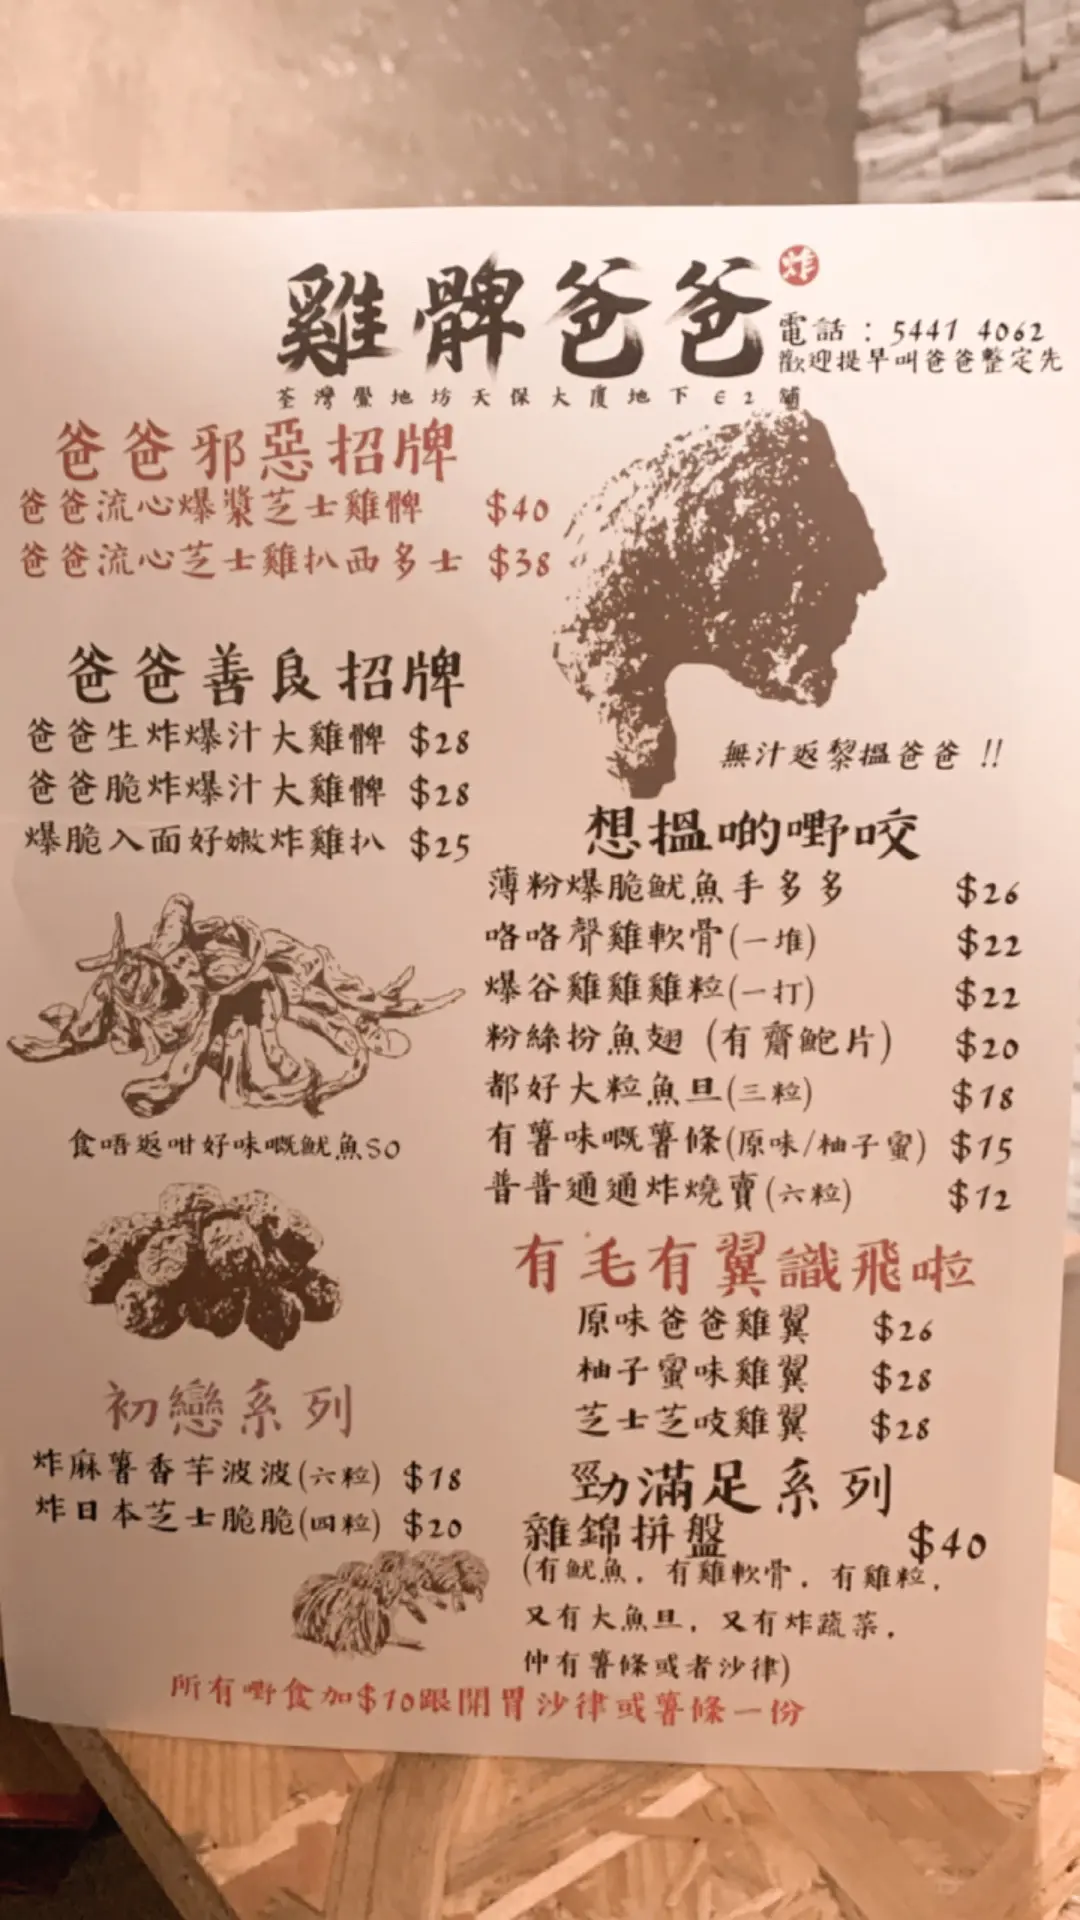 雞髀爸爸
炸
電話：5441 4062
歡迎提早叫爸爸整定先
荃灣壆地坊天保大廈地下E2舖
爸爸邪惡招牌
爸爸流心爆漿芝士雞髀 $40
爸爸流心芝士雞扒西多士 $38
爸爸善良招牌
爸爸生炸爆汁大雞髀 $28
爸爸脆炸爆汁大雞髀 $28
爆脆入面好嫩炸雞扒 $25
無汁返黎搵爸爸 !!
想搵啲嘢咬
薄粉爆脆魷魚手多多 $26
咯咯聲雞軟骨(一堆) $22
爆谷雞雞雞粒(一打) $22
粉絲扮魚翅 (有齋鮑片) $20
都好大粒魚旦(三粒) $18
有薯味嘅薯條(原味/柚子蜜) $15
普普通通炸燒賣(六粒) $12
食唔返咁好味嘅魷魚SO
有毛有翼識飛啦
原味爸爸雞翼 $26
柚子蜜味雞翼 $28
芝士芝吱雞翼 $28
初戀系列
炸麻薯香芋波波(六粒) $18
炸日本芝士脆脆(四粒) $20
勁滿足系列
雜錦拼盤 $40
(有魷魚，有雞軟骨，有雞粒，
又有大魚旦，又有炸蔬菜，
仲有薯條或者沙律)
所有嘢食加$10跟開胃沙律或薯條一份